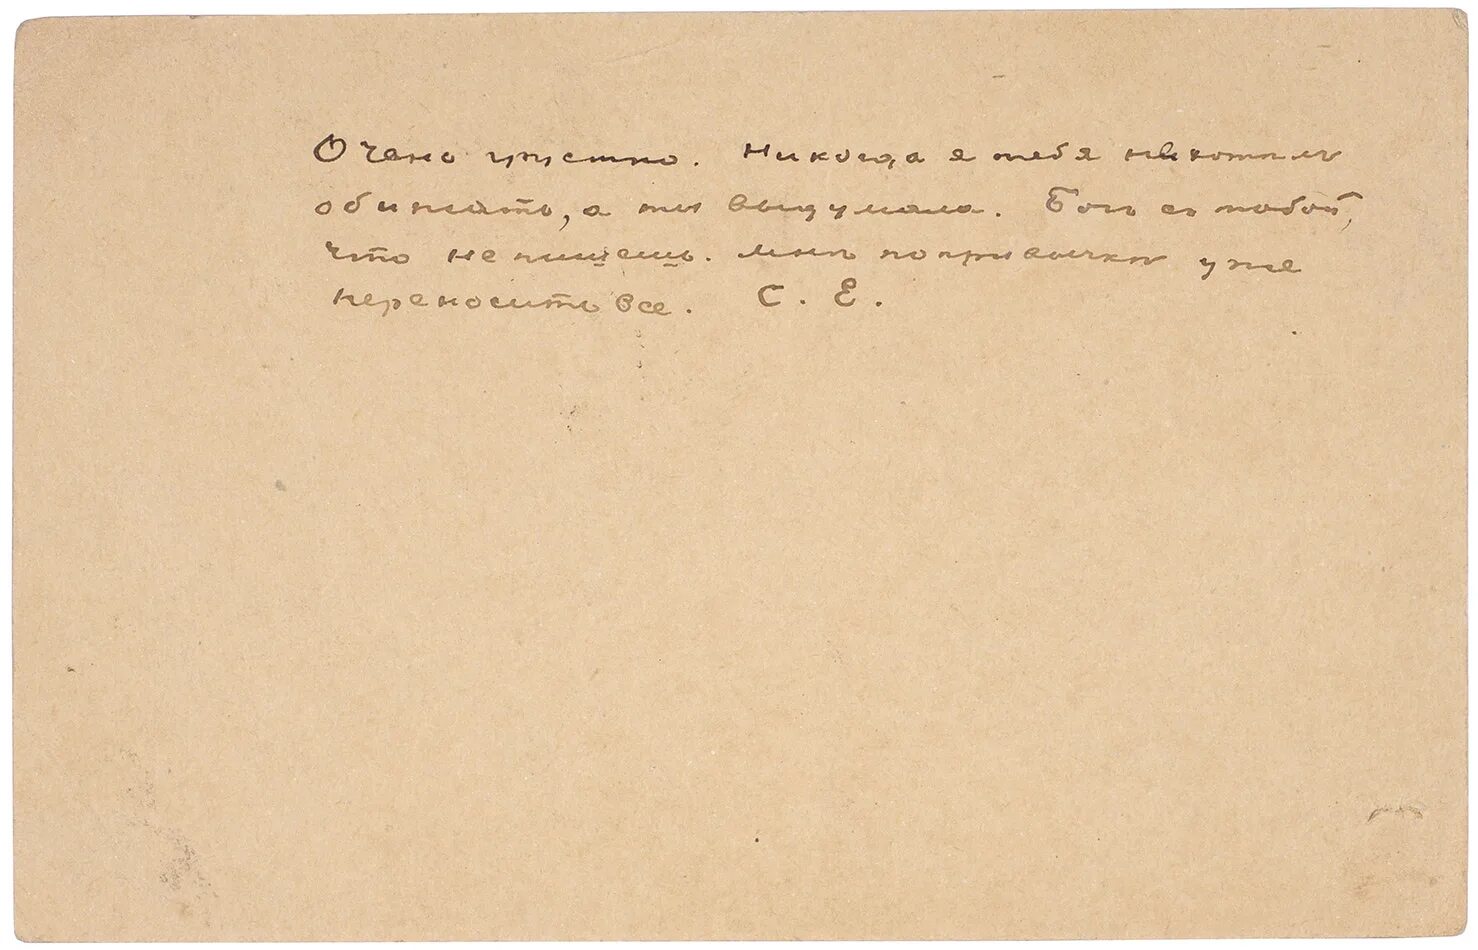 Очень грустно. Никогда я тебя не хотел
обижать, а ты выдумала. Бог с тобой,
что не пишешь. мне по привычке уже
переносить все. С. Е.